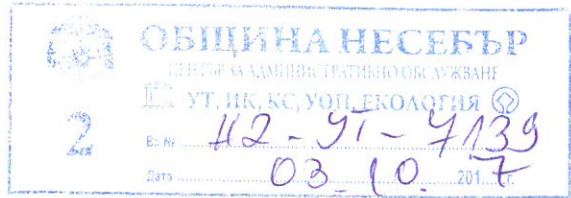 ОБЩИНА НЕСЕБЪР
ЦЕНТЪР ЗА АДМИНИСТРАТИВНО ОБСЛУЖВАНЕ
УТ, ИК, КС, УОП, ЕКОЛОГИЯ
2
Вх. № Н2-УТ-7139
Дата 03.10. 2017 г.